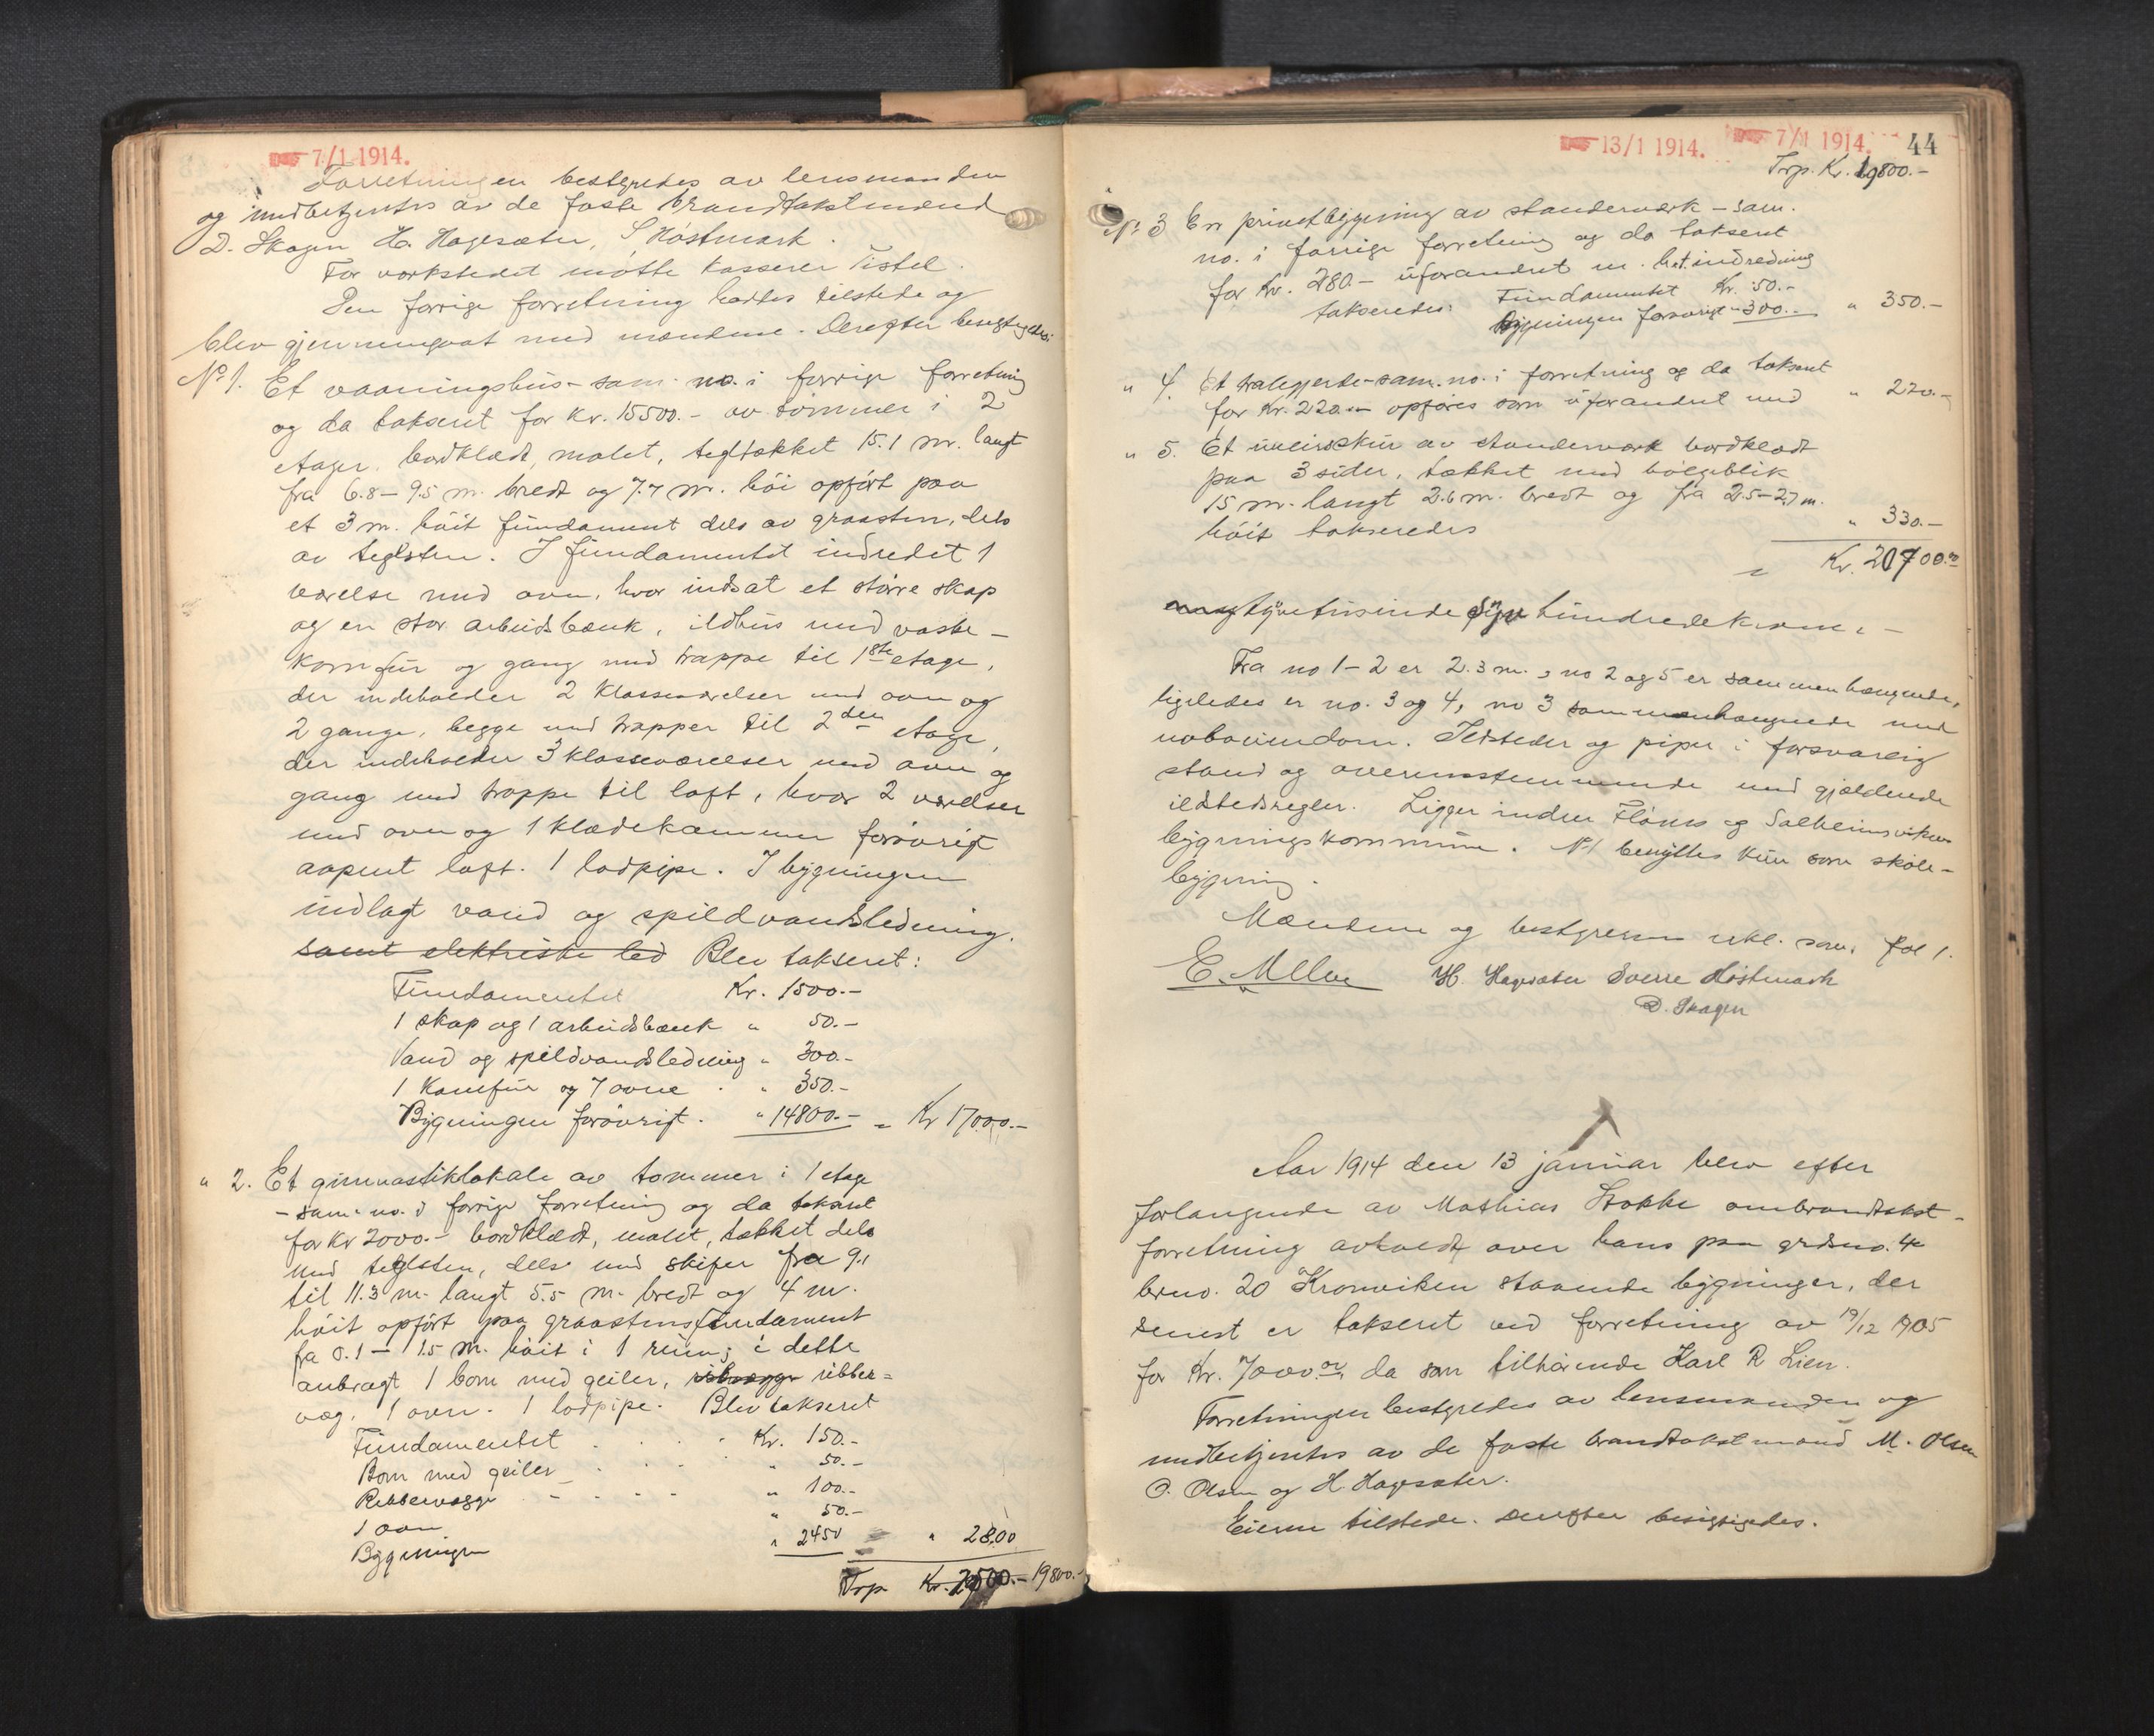 7/1 1914.
Forretningen bestyredes av lensmanden
og medbetjentes av de faste brandtakstmænd
D. Skagen H. Hagesæter, S Høstmark.
For verkstedet møtte kasserer Tistel.
Den forrige forretning hadtes tilstede og
blev gjennemgaat med mændene. Derefter besigtigedes:
No 1. Et vaaningshus - sam. no. i forrige forretning
og da takseret for kr. 15500.- av tømmer i 2
etager, bordklædt, malet, tegltækket 15.1 m. langt
fra 6.8 - 9.5 m. bredt og 7.7 m. høi opført paa
et 3 m. høit fundament dels av graasten, dels
av teglsten. I fundamentet indredet 1
værelse med ovn, hvor indsat et større skap
og en stor arbeidsbænk, ildhus med vaske-
komfur og gang med trappe til 1ste etage,
der indeholder 2 klasseværelser med ovn og
2 gange, begge med trapper til 2den etage,
der indeholder 3 klasseværelser med ovn og
gang med trappe til loft, hvor 2 værelser
med ovn og 1 klædekammer forøvrigt
aapent loft. 1 lodpipe. I bygningen
indlagt vand og spildvandsledning.
samt elektriske led Blev takseret:
Fundamentet Kr. 1500.-
1 skap og 1 arbeidsbænk " 50.-
Vand og spildvandsledning " 300.-
1 Komfur og 7 ovne " 350.-
Bygningen forøvrigt. " 14800.- = Kr 17000.-
" 2. Et gimnastiklokale av tømmer i 1 etage
- sam. no. i forrige forretning og da takseret
for Kr 2000.- bordklædt, malet, tækket dels
med teglsten, dels med skifer fra 9.1
til 11.3 m. langt 5.5 m. bredt og 4 m.
høit opført paa graastensfundament
fra 0.1 - 1.5 m. høit i 1 rum; i dette
anbragt 1 bom med geiler, ribber=
væg, 1 ovn. 1 lodpipe. Blev takseret
Fundamentet Kr. 150.-
Bom med geiler " 50.-
Ribbevægge " 100.-
1 ovn " 50.-
Bygningen " 2450 " 2800
Trp Kr. 19800.-
13/1 1914. 7/1 1914. 44
Trp. Kr. 19800.-
No 3 En privetbygning av standerværk - sam.
no. i forrige forretning og da takseret
for Kr. 280.- uforandret m. h. t. indredning
takseredes: Fundamentet Kr. 50.-
Bygningen forøvrigt " 300.- " 350.-
" 4. Et tralegjerde - sam. no. i forretning og da takseret
for Kr. 220.- opføres som uforandret med " 220.-
" 5. Et skur av standerværk bordklædt
paa 3 sider, tækket med bølgeblik
15 m. langt 2.6 m. bredt og fra 2.5 - 2.7 m.
høit takseredes " 330.-
Kr. 20700.00
tyvetusinde syv hundrede kroner -
Fra no 1 - 2 er 2.3 m., no 2 og 5 er sammenhængende,
ligeledes er no. 3 og 4, no 3 sammenhængende med
naboeiendom. Ildsteder og piper i forsvarlig
stand og overensstemmende med gjældende
ildstedsregler. Ligger inden Fløens og Solheimsvikens
bygningskommune. No 1 benyttes kun som skole-
bygning.
Mændene og bestyreren erkl. som fol 1.
E. Mlbe H. Hagesæter Sverre Høstmark
D. Skagen
Aar 1914 den 13 januar blev efter
forlangende av Mathias Stokke ombrandtakst-
forretning avholdt over hans paa grdsno. 4
brno. 20 Kronviken staaende bygninger, der
senest er takseret ved forretning av 19/12 1905
for Kr. 7000.00, da som tilhørende Karl R Lien.
Forretningen bestyredes av lensmanden og
medbetjentes av de faste brandtakstmænd M. Olsen
O. Olsen og H. Hagesæter.
Eieren tilstede. Derefter besigtigedes.